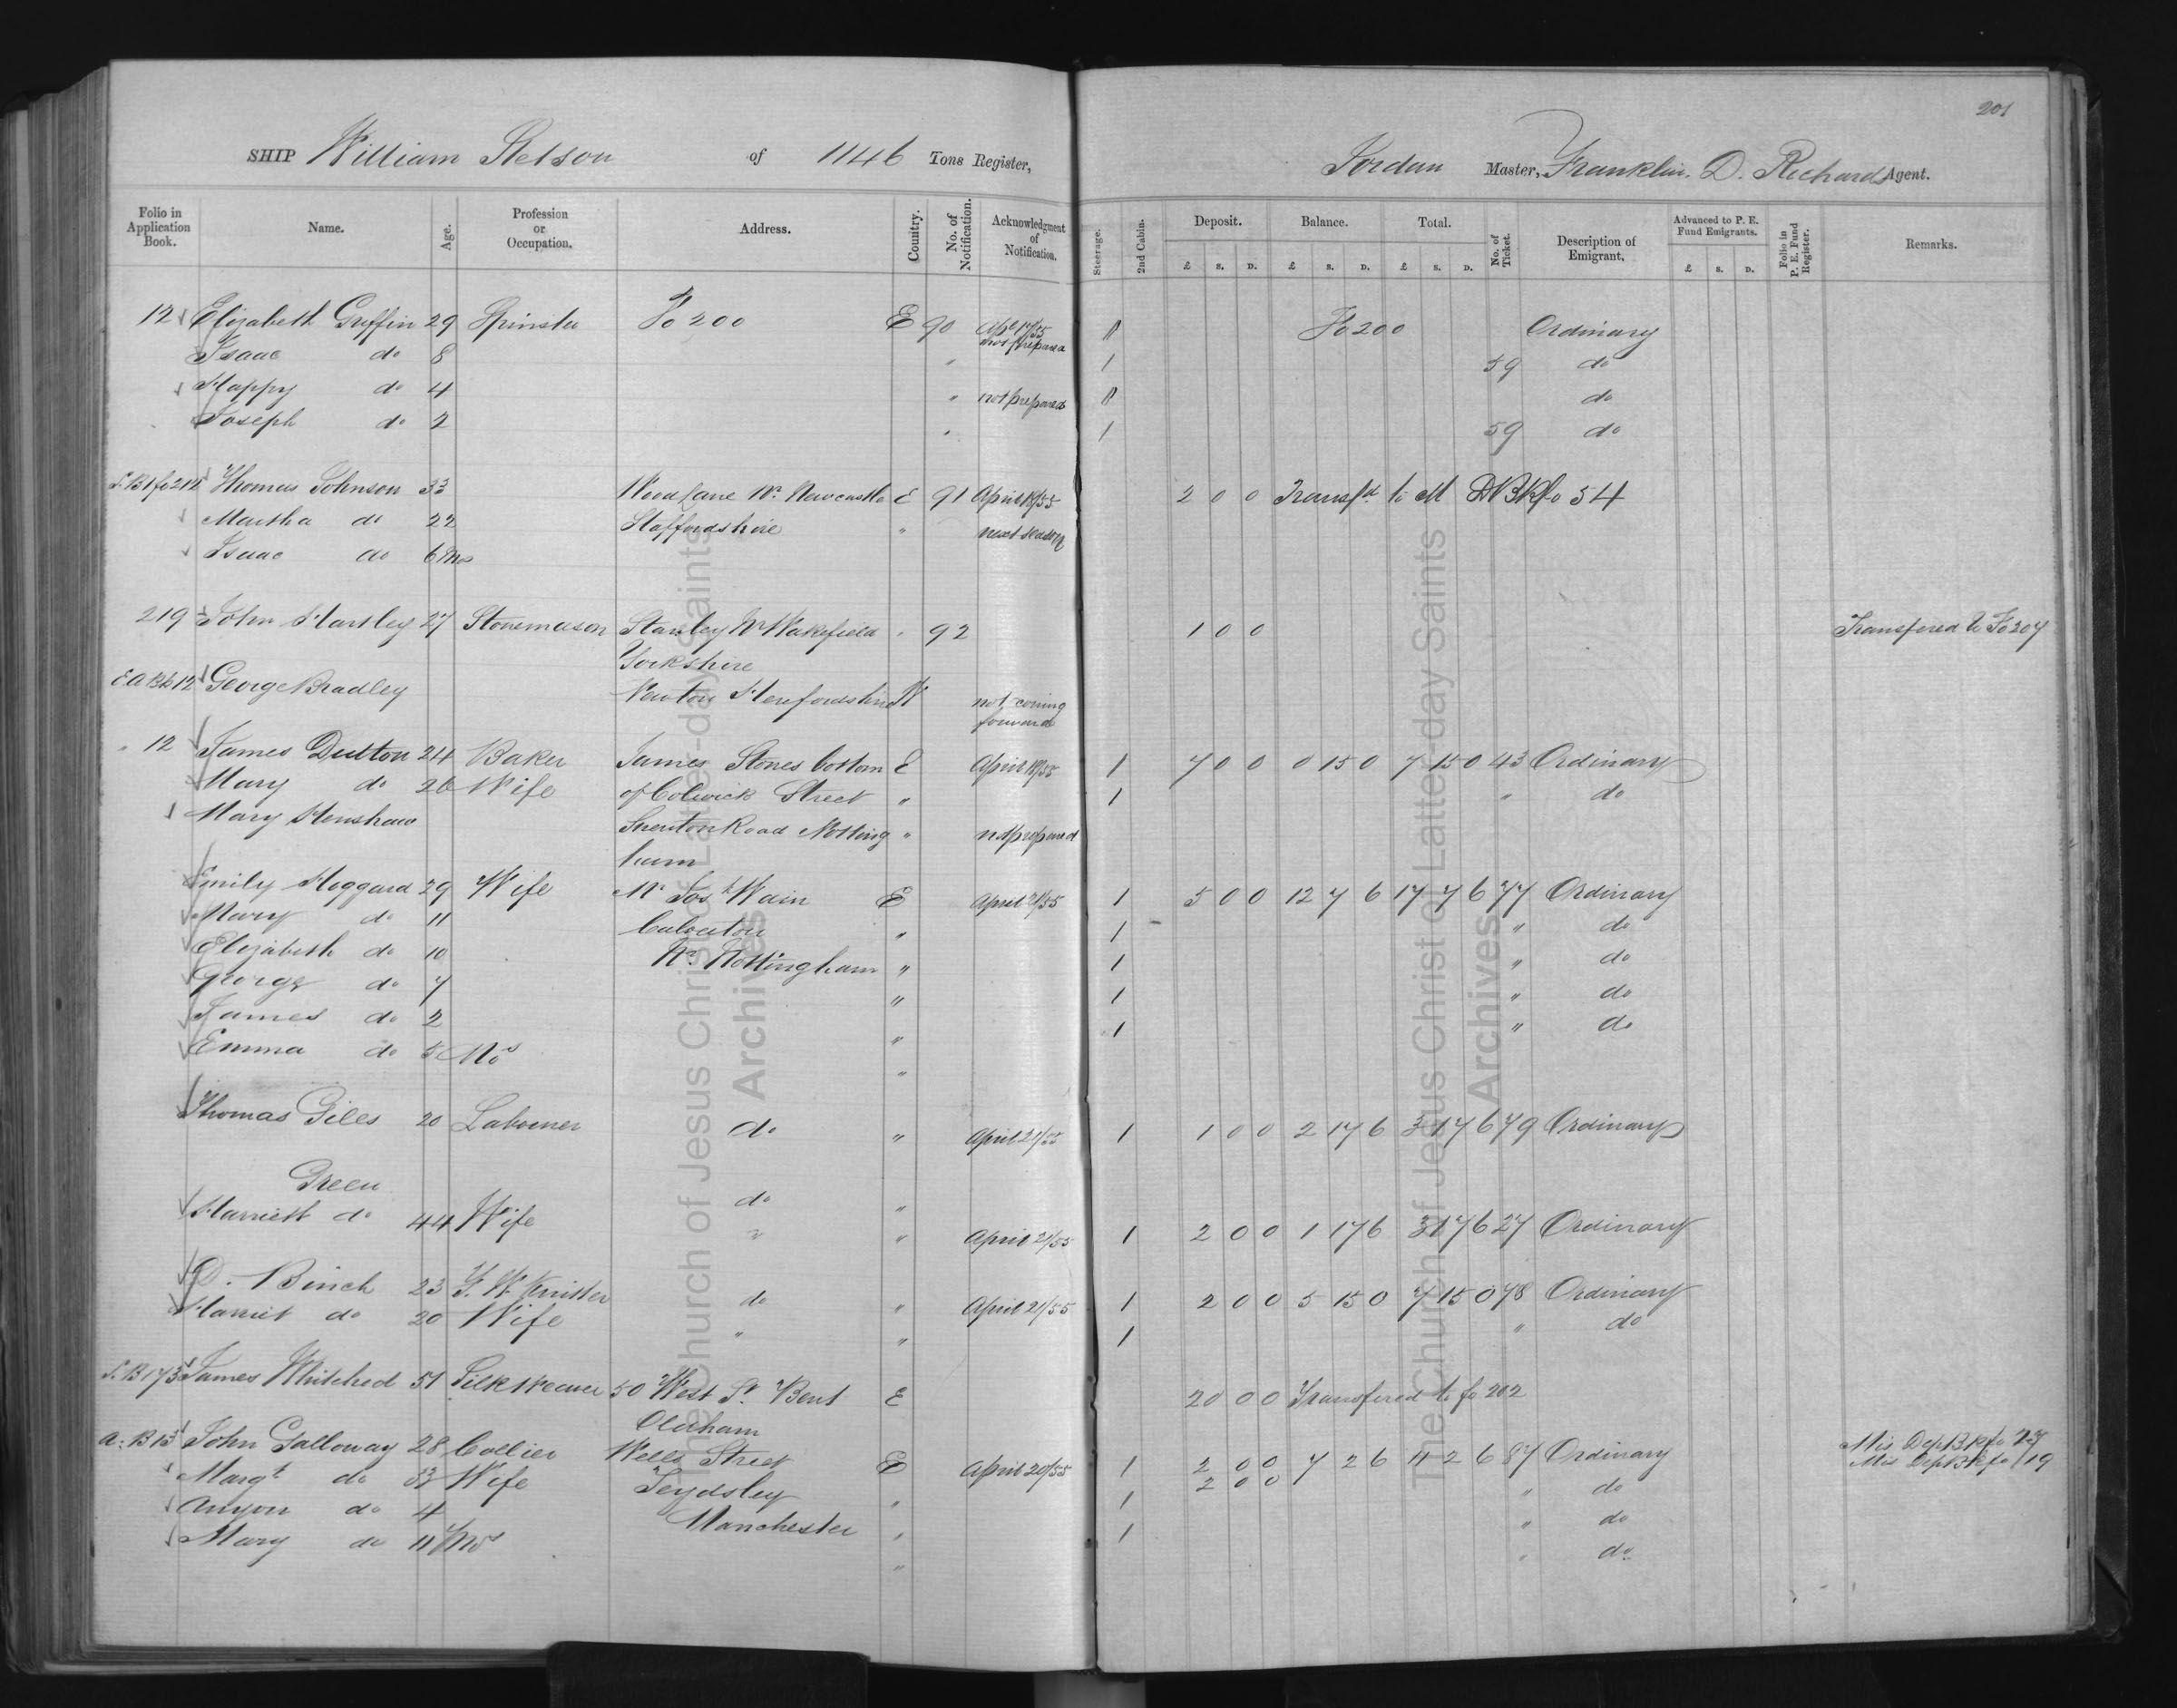 201
SHIP William Stetson of 1146 Tons Register, Jordan Master, Franklin. D. Richards Agent.
Folio in Application Book. Name. Age. Profession or Occupation. Address. Country. No. of Notification. Acknowledgment of Notification. Steerage. 2nd Cabin. Deposit. Balance. Total. No. of Ticket. Description of Emigrant. Advanced to P. E. Fund Emigrants. Folio in P. E. Fund Register. Remarks.
£ S. D. £ S. D. £ S. D. £ S. D.
12 Elizabeth Griffin 29 Spinster Fo 200 E 90 Apl 17/55 Fo 200 Ordinary
not prepared
Isaac do 8 " 1 59 do
Happy do 4 " not prepared do
Joseph do 2 " 1 59 do
Thomas Johnson 33 Wood Lane Nr. Newcastle E 91 April 18/55 2 0 0 Transfd. to M D B K fo 54
Martha do 22 Staffordshire " next season
Isaac do 6 Mos
219 John Hartley 27 Stonemason Stanley Nr Wakefield " 92 1 0 0 Transfered to Fo 207
Yorkshire
George Bradley Newton Herefordshire W not coming
forward
" 12 James Dutton 24 Baker James Stones bottom E April 18/55 1 7 0 0 0 15 0 7 15 0 43 Ordinary
Mary do 26 Wife of Colwick Street " 1 " do
Mary Henshaw Sneuton Road Notting " not prepared
ham
Emily Hoggard 29 Wife Mr Josh Wain E April 21/55 1 5 0 0 12 7 6 17 7 6 77 Ordinary
Mary do 11 Calverton " 1 " do
Elizabeth do 10 Nr. Nottingham " 1 " do
George do 7 " 1 " do
James do 2 " 1 " do
Emma do 5 Mos "
Thomas Giles 20 Labourer do " April 21/55 1 1 0 0 2 17 6 3 17 6 79 Ordinary
Green do "
Harriett do 44 Wife " " April 21/55 1 2 0 0 1 17 6 3 17 6 27 Ordinary
D. Binch 23 F. W. Knitter do " April 21/55 1 2 0 0 5 15 0 7 15 0 78 Ordinary
Harriet do 20 Wife " " 1 " do
James Whitehed 51 Silk Weaver 50 West St. Bent E 20 0 0 Transfered to fo 202
Oldham
John Galloway 28 Collier Wells Street E April 20/55 1 2 0 0 7 2 6 11 2 6 87 Ordinary Mis Dep B K fo
Margt do 33 Wife Tydsley " 1 2 0 0 " do Mis Dep B K fo 119
Anyon do 4 Manchester " 1 " do
Mary do 11 Mos " " do
The Church of Jesus Christ of Latter-day Saints
Archives
The Church of Jesus Christ of Latter-day Saints
Archives